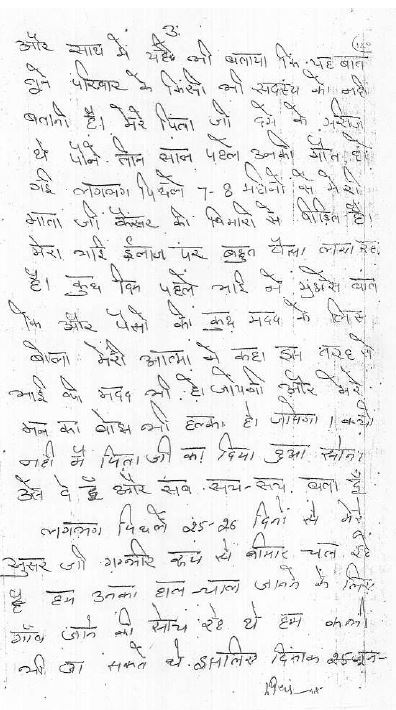 3.
और साथ में यह भी बताया कि यह बात
तूने परिवार के किसी भी सदस्य को नही
बतानी है। मेरे पिता जी दमे के मरीज
थे पौने तीन साल पहले उनकी मौत हो
गई लगभग पिछले 7-8 महीनों से मेरी
माता जी कैंसर की बिमारी से पीड़ित है।
मेरा भाई ईलाज पर बहुत पैसा लगा रहा
है। कुछ दिन पहले भाई ने मुझसे बात
कि और पैसों की कुछ मदद के लिए
बोला मेरी आत्मा ने कहा इस तरह से
भाई की मदद भी हो जायेगी और मेरे
मन का बोझ भी हल्का हो जायेगा।
नही मैं पिता जी का दिया हुआ सोना
उसे दे दूँ और सब सच-सच बता दूँ
लगभग पिछले 25-26 दिनों से मेरे
ससुर जी गम्भीर रूप से बीमार चल रहे
है हम उनका हाल चाल जानने के लिए
गाँव जाने की सोच रहे थे हम कभी
भी जा सकते थे इसलिए दिनांक 25 जून-